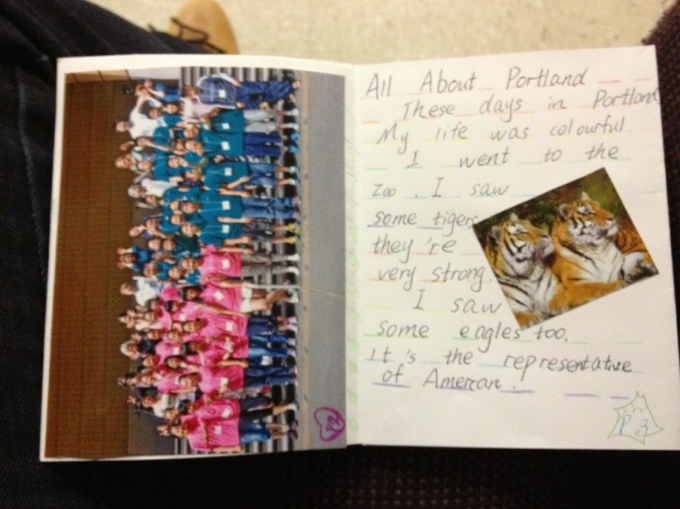 All About Portland
These days in Portland
My life was colourful.
I went to the
zoo. I saw
some tigers
they're
very strong.
I saw
some eagles too.
It's the representative
of Amercan.
P.3